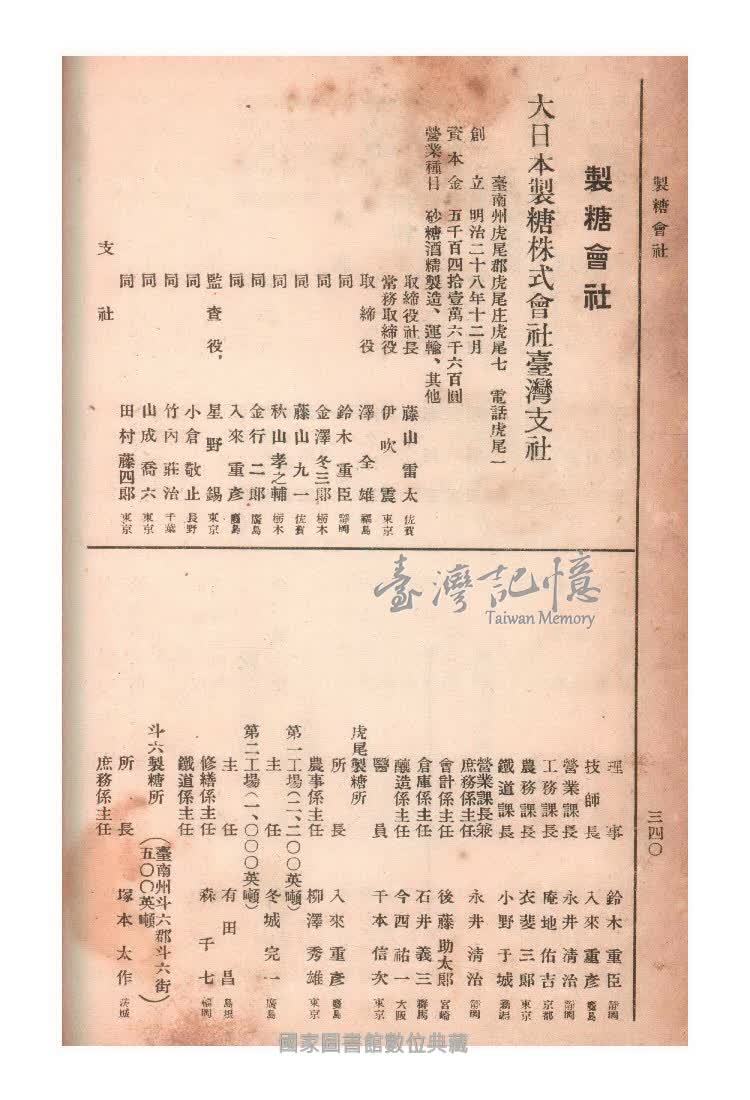 製糖會社
三四〇
製糖會社
大日本製糖株式會社臺灣支社
臺南州虎尾郡虎尾庄虎尾七 電話虎尾一
創立 明治二十八年十二月
資本金 五千百四拾壹萬六千六百圓
營業種目 砂糖酒精製造、運輸、其他
取締役社長 藤山雷太 佐賀
常務取締役 伊吹震 東京
取締役 澤全雄 福島
同 鈴木重臣 靜岡
同 金澤冬三郎 栃木
同 藤山九一 佐賀
同 秋山孝之輔 栃木
同 金行二郎 廣島
同 入來重彥
監査役 星野錫 東京
同 小倉敬止 長野
同 竹內莊治 千葉
同 山成喬六 東京
同 田村藤四郎 東京
支社
理事 鈴木重臣 靜岡
技師長 入來重彥
營業課長 永井淸治 靜岡
工務課長 庵地佑吉 京都
農務課長 衣斐三郞 東京
鐵道課長 小野于城
營業課長兼
庶務係主任 永井淸治 靜岡
會計係主任 後藤助太郎 宮崎
倉庫係主任 石井義三 群馬
釀造係主任 今西祐一 大阪
醫員 千本信次 東京
虎尾製糖所
所長 入來重彥
農事係主任 柳澤秀雄 東京
第一工場(二、二〇〇英噸)
主任 冬城完一 廣島
第二工場(一、〇〇〇英噸)
主任 有田昌 島根
修繕係主任 森千七 福岡
鐵道係主任
斗六製糖所 (臺南州斗六郡斗六街
五〇〇英噸)
所長 塚本太作 茨城
庶務係主任
臺灣記憶
Taiwan Memory
國家圖書館數位典藏